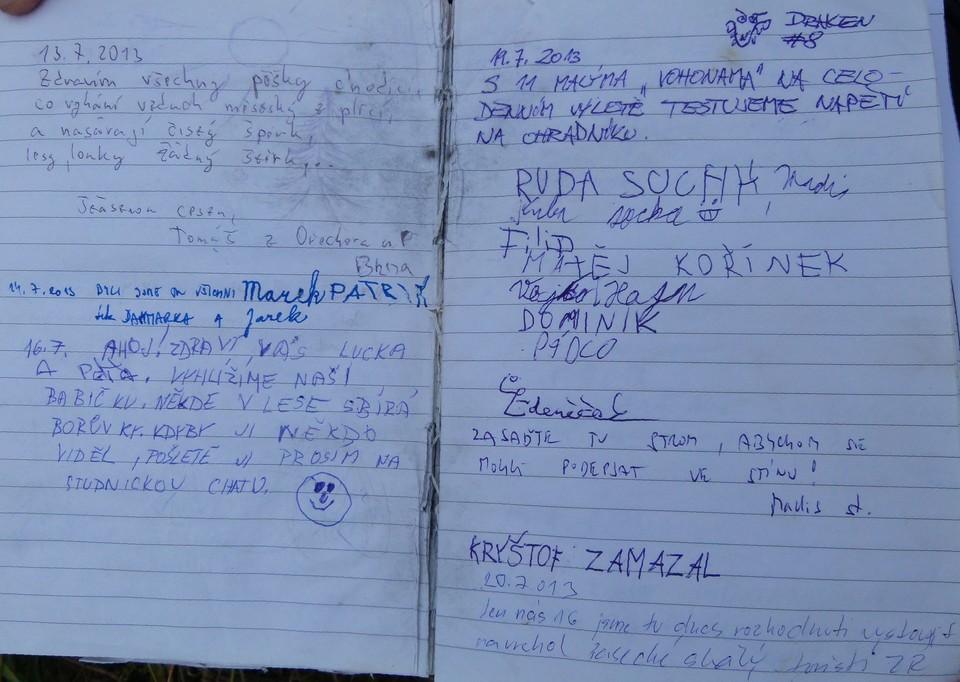 13.7.2013
Zdravím všechny pěšky chodící,
co vyhání vzduch městský z plící,
a nasávají čistý
lesy, louky žádný
Šťastnou cestu,
Tomáš z Ořechova u
Brna
14.7.2013 BYLI JSME TU VŠICHNI Marek PATRIK
A Jarek
16.7. AHOJ! ZDRAVÍ VÁS LUCKA
A PÉŤA. VYHLÍŽÍME NAŠÍ
BABIČKU. NĚKDE V LESE SBÍRÁ
BORŮVKY. KDYBY JI NĚKDO
VIDĚL, POŠLETE JI PROSÍM NA
STUDNICKOU CHATU.
DRAKEN
#8
19.7.2013
S 11 MALÝMA „VOHONAMA" NA CELO-
DENNÍM VÝLETĚ TESTUJEME NAPĚTÍ
NA OHRADNÍKU.
RUDA SOCHA, Madis
Kuba socha
Filip
MATĚJ KOŘÍNEK
Vojta Hajn
DOMINIK
PÁĎO
Zdenèčák
ZASAĎTE TU STROM, ABYCHOM SE
MOHLI PODEPSAT VE STÍNU!
Madis st.
KRYŠTOF ZAMAZAL
20.7.2013
Jen nás 16 jsme tu dnes rozhodnuti vystoupit
na vrchol skály turisti ZR